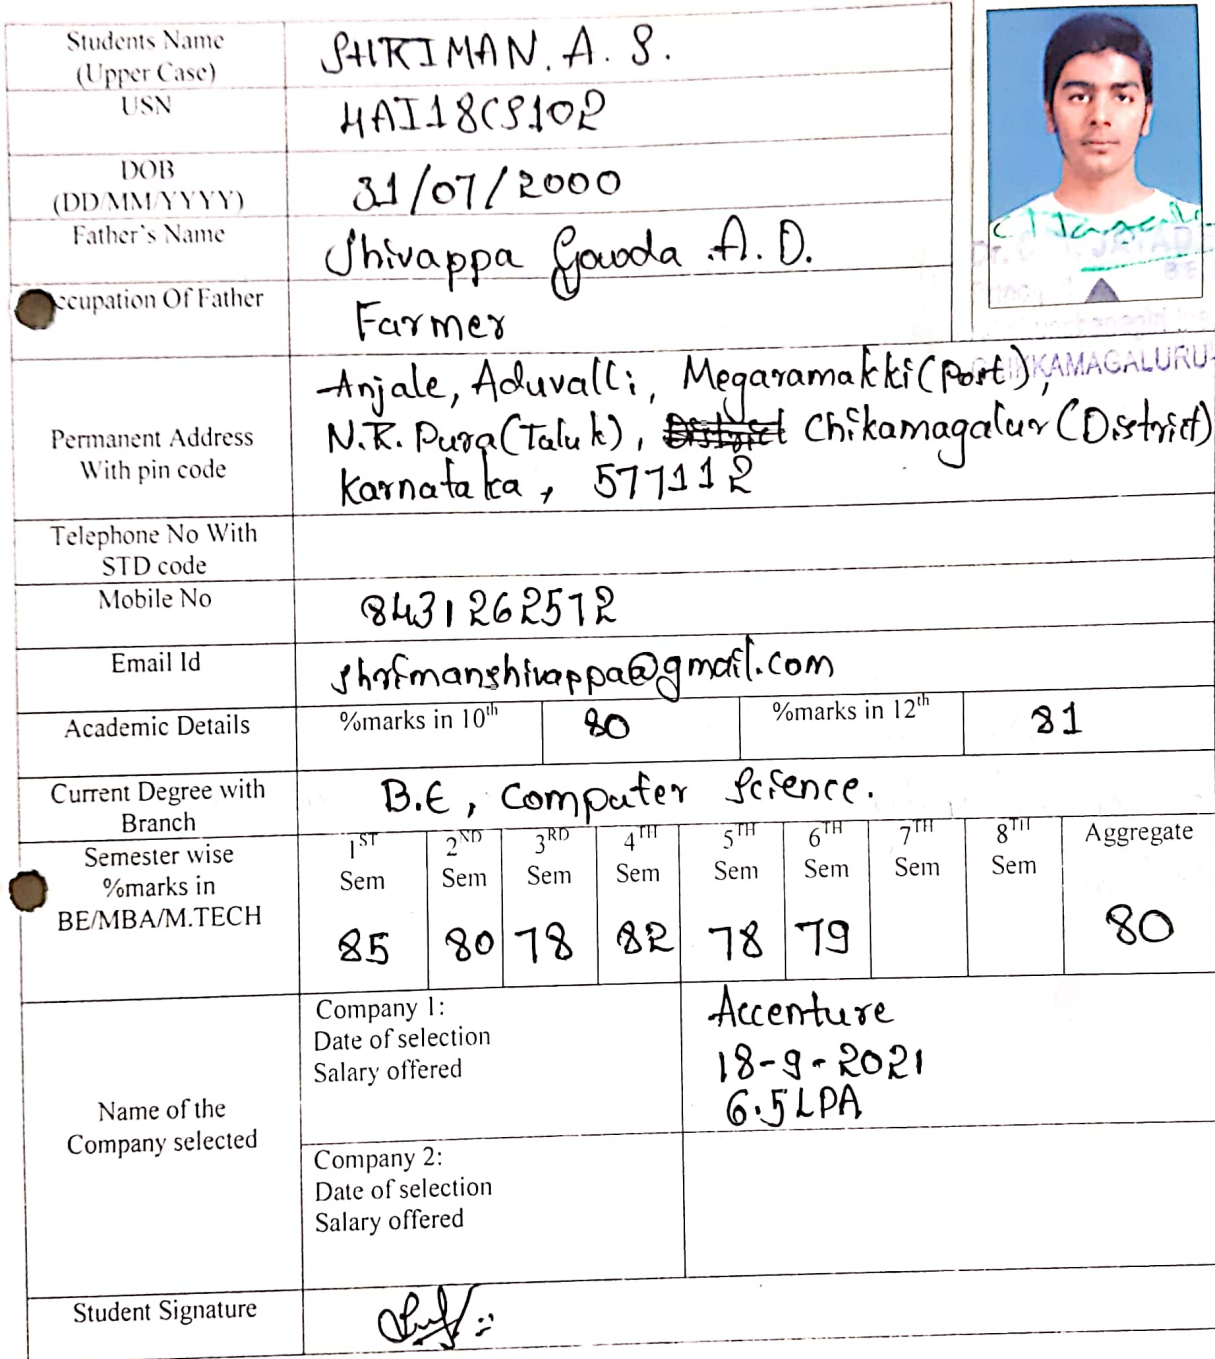 Students Name
(Upper Case)
SHRIMAN. A. S.
USN
4AI18CS102
DOB
(DD/MM/YYYY)
31/07/2000
Father's Name
Shivappa Gowda A. D.
ccupation Of Father
Farmer
Permanent Address
With pin code
Anjale, Aduvalli, Megaramakki (Post),
N.R. Pura (Taluk), District Chikamagalur (District)
Karnataka, 577112
KKAMAGALURU
Telephone No With
STD code
Mobile No
8431262512
Email Id
shrimanshivappa@gmail.com
Academic Details
%marks in 10th
80
%marks in 12th
81
Current Degree with
Branch
B.E, Computer Science.
Semester wise
%marks in
BE/MBA/M.TECH
1ST
Sem
2ND
Sem
3RD
Sem
4TH
Sem
5TH
Sem
6TH
Sem
7TH
Sem
8TH
Sem
Aggregate
85 80 78 82 78 79 80
Name of the
Company selected
Company 1:
Date of selection
Salary offered
Accenture
18-9-2021
6.5LPA
Company 2:
Date of selection
Salary offered
Student Signature